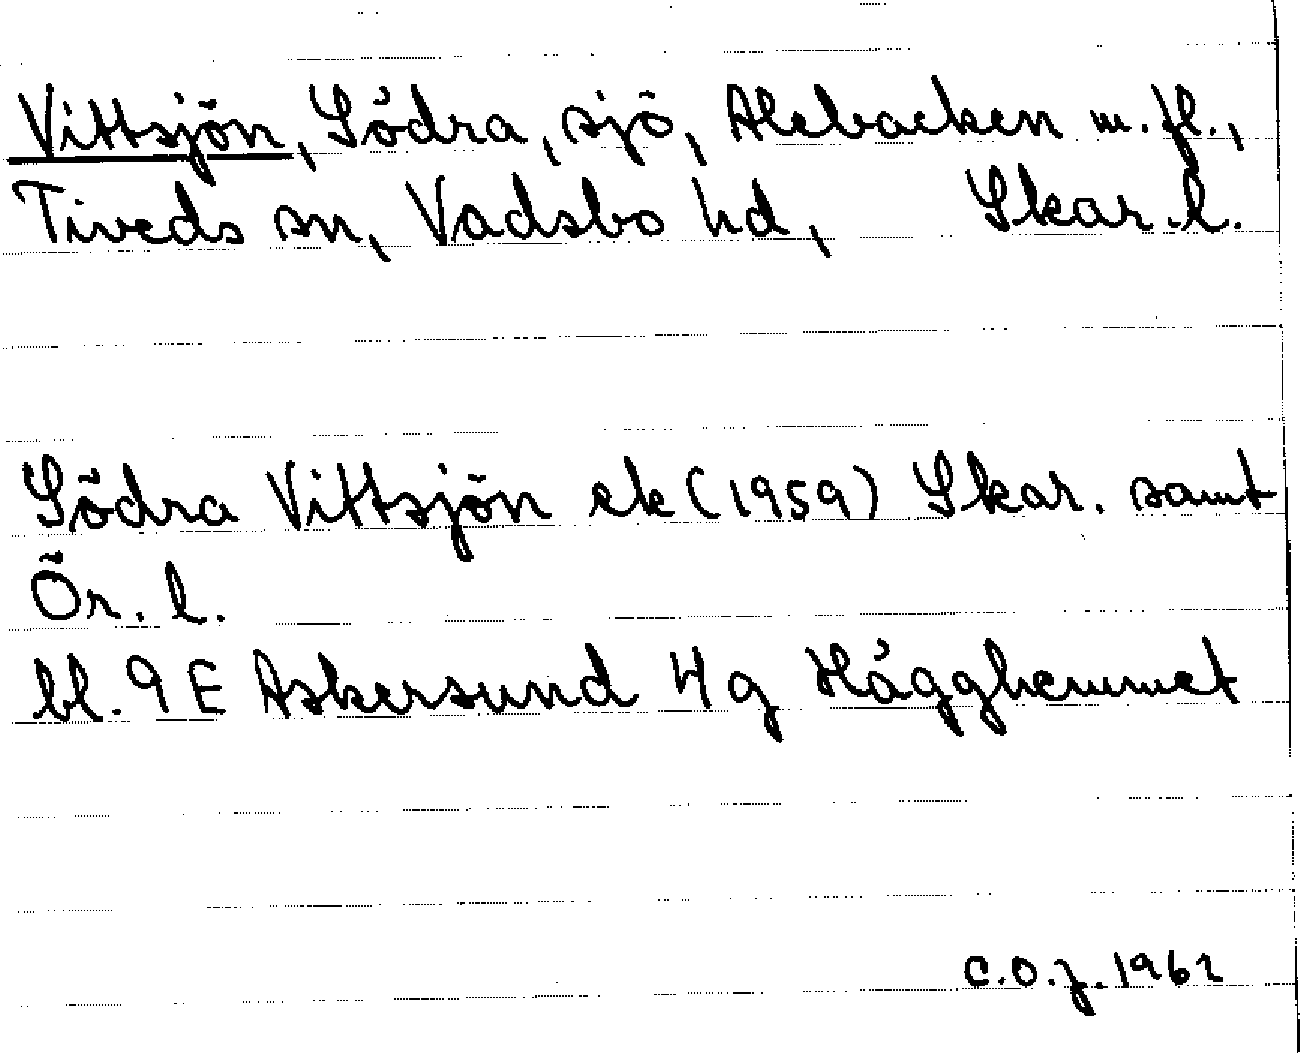 Vittsjön, Södra, sjö, Alebacken m.fl.,
Tiveds sn, Vadsbo hd, Skar.l.
Södra Vittsjön ek (1959) Skar. samt
Ör. l.
bl. 9 E Askersund 4 g Hägghemmet
C.O.J. 1962